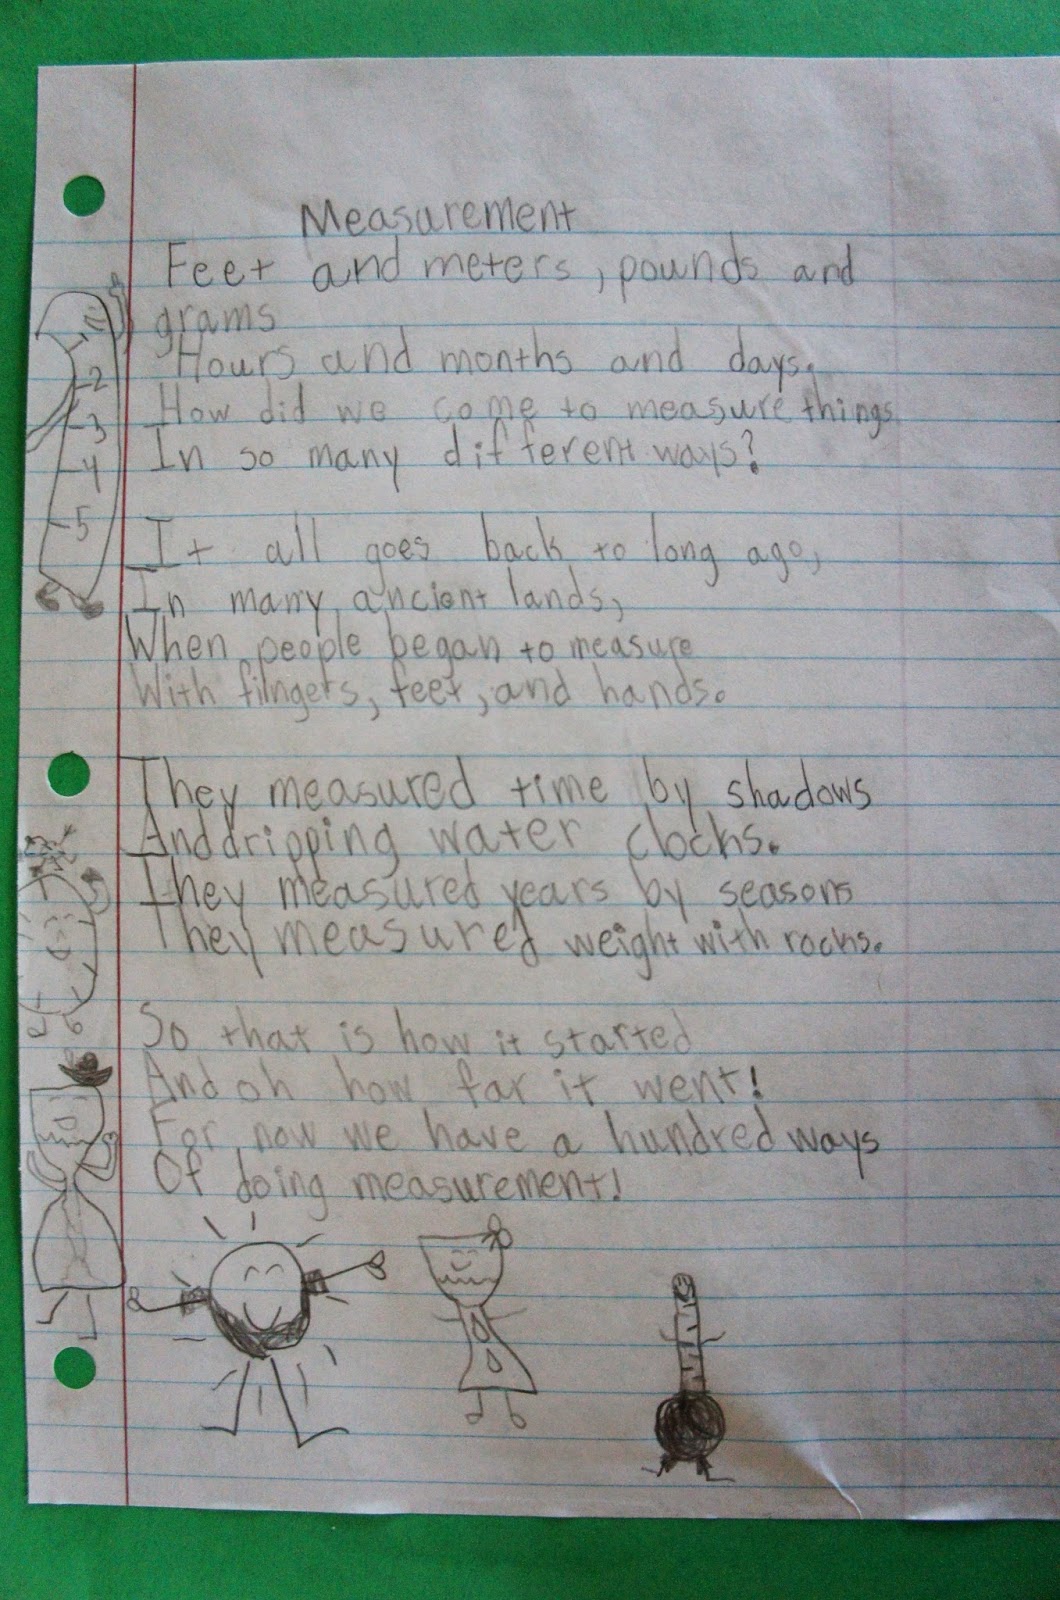 Measurement
Feet and meters, pounds and
grams
Hours and months and days.
How did we come to measure things
In so many different ways?
It all goes back to long ago,
In many ancient lands,
When people began to measure
With filngers, feet, and hands.
They measured time by shadows
And dripping water clocks.
They measured years by seasons
They measured weight with rocks.
So that is how it started
And oh how far it went!
For now we have a hundred ways
Of doing measurement!
2
3
4
5